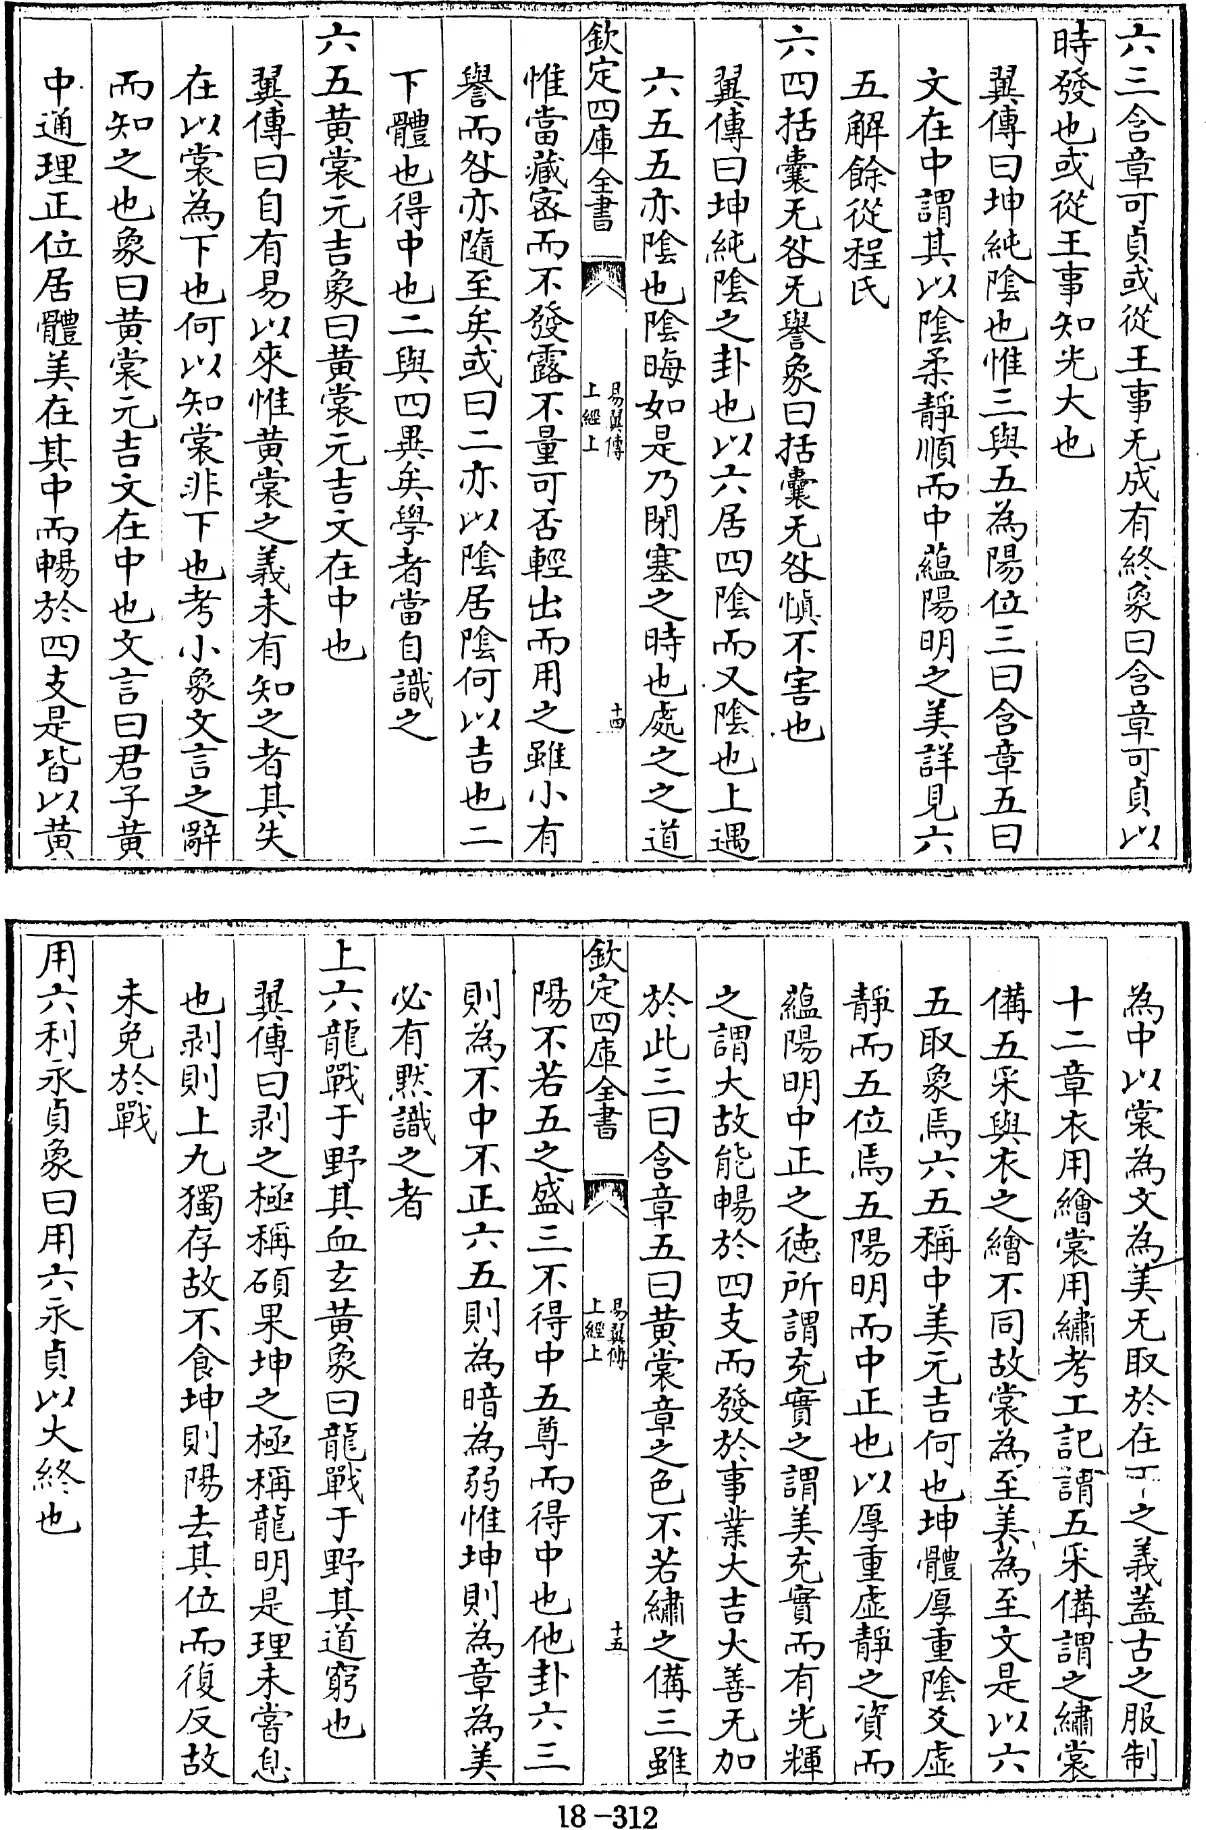 六三含章可貞或從王事无成有終象曰含章可貞以
時發也或從王事知光大也
翼傳曰坤純陰也惟三與五為陽位三曰含章五曰
文在中謂其以陰柔靜順而中蘊陽明之美詳見六
五解餘從程氏
六四括囊无咎无譽象曰括囊无咎慎不害也
翼傳曰坤純陰之卦也以六居四陰而又陰也上遇
六五五亦陰也陰晦如是乃閉塞之時也處之之道
欽定四庫全書
易翼傳
上經上
十四
惟當藏密而不發露不量可否輕出而用之雖小有
譽而咎亦隨至矣或曰二亦以陰居陰何以吉也二
下體也得中也二與四異矣學者當自識之
六五黃裳元吉象曰黃裳元吉文在中也
翼傳曰自有易以來惟黃裳之義未有知之者其失
在以裳為下也何以知裳非下也考小象文言之辭
而知之也象曰黃裳元吉文在中也文言曰君子黃
中通理正位居體美在其中而暢於四支是皆以黃
為中以裳為文為美无取於在下之義蓋古之服制
十二章衣用繪裳用繡考工記謂五采備謂之繡裳
備五采與衣之繪不同故裳為至美為至文是以六
五取象焉六五稱中美元吉何也坤體厚重陰爻虛
靜而五位焉五陽明而中正也以厚重虛靜之資而
蘊陽明中正之德所謂充實之謂美充實而有光輝
之謂大故能暢於四支而發於事業大吉大善无加
於此三曰含章五曰黃裳章之色不若繡之備三雖
欽定四庫全書
易翼傳
上經上
十五
陽不若五之盛三不得中五尊而得中也他卦六三
則為不中不正六五則為暗為弱惟坤則為章為美
必有默識之者
上六龍戰于野其血玄黃象曰龍戰于野其道窮也
翼傳曰剥之極稱碩果坤之極稱龍明是理未嘗息
也剥則上九獨存故不食坤則陽去其位而復反故
未免於戰
用六利永貞象曰用六永貞以大終也
18-312